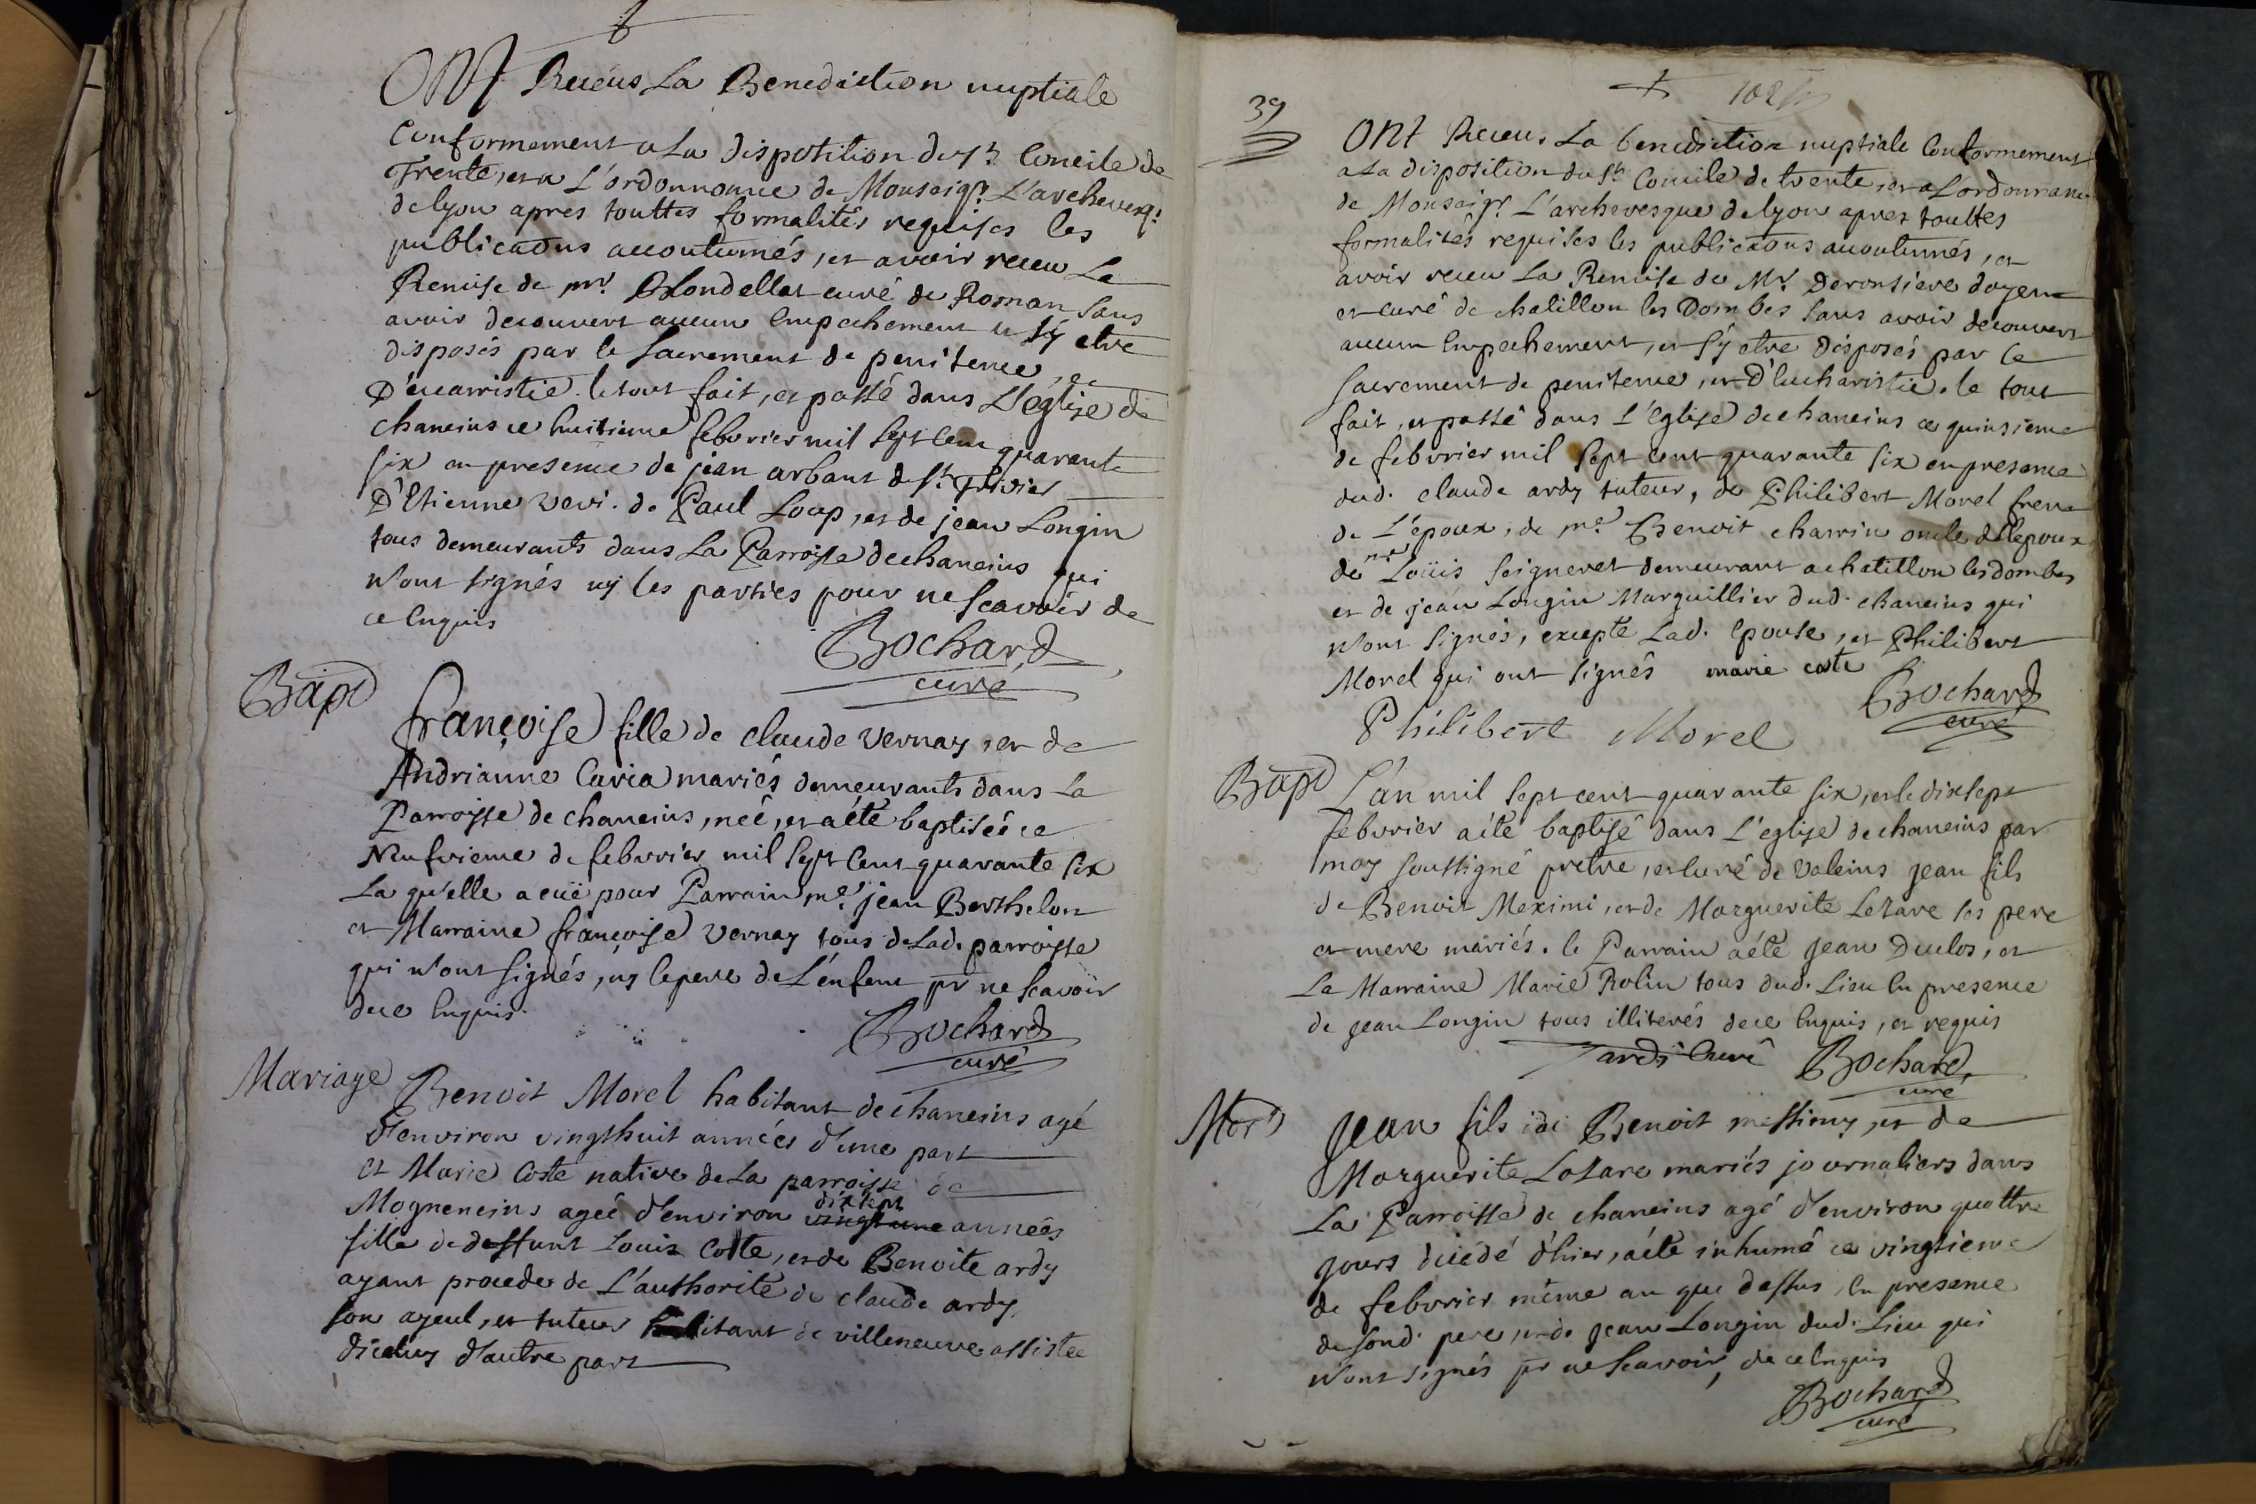 Ont Receus La Benediction nuptiale
Conformement a La disposition du st Concile de
Trente, et a L'ordonnance de Monseigr. L'archevesq.
de lyon apres touttes formalités requises les
publications accoutumés, et avoir receu La
Remise de mr. Blondellat curé de Roman sans
avoir decouvert aucun Empechement et s'y etre
disposés par le sacrement de penitence, et
D'eucarristie. le tout fait, et passé dans L'église de
chaneins ce huitieme febvrier mil sept Cent quarante
six en presence de jean arbant de st Trivier
D'Etienne veri. de Paul Loup, et de jean Longin
tous demeurants dans La Parroisse de chaneins qui
n'ont signés ny les parties pour ne scavoir de
ce Enquis
Bochard
curé
Bapt
françoise fille de claude vernay, et de
Andrianne Caria mariés demeurants dans La
Parroisse de chaneins, néé, et a été baptiséé ce
Neufvieme de febvrier mil sept Cent quarante six
La qu'elle a eüe pour Parrain me. jean Berthelon
et Marraine françoise vernay tous de Lad. parroisse
qui n'ont signés, ny le pere de L'enfent pr ne scavoir
de ce Enquis.
Bochard
curé
Mariage
Benoit Morel habitant de chaneins agé
d'environ vingthuit années d'une part
et Marie Coste native de La parroisse de
Mogneneins ageé d'environ dixsept années
fille de deffunt Louis Coste, et de Benoite ardy
ayant procedes de L'authorité de claude ardy
son ayeul, et tuteur habitant de villeneuve assistee
d'iceluy d'autre part
39
102
Ont Receu. La benediction nuptiale Conformement
a La disposition du st Concile de trente, et a L'ordonnance
de Monseigr. L'archevesque de lyon apres touttes
formalités requises les publications accoutumés, et
avoir receu La Remise de Mr. Deronsiere doyen
et curé de chatillon les Dombes sans avoir decouvert
aucun Empechement, et s'y etre disposés par le
sacrement de penitence, et D'Eucharistie. le tout
fait, et passé dans L'eglise de chaneins ce quinsieme
de febvrier mil sept cent quarante six en presence
dud. claude ardy tuteur, de Philibert Morel frere
de L'époux, de me. Benoit charrin oncle de l'epoux
de me Loüis seigneret demeurant a chatillon les dombes
et de jean Longin Marguillier dud. chaneins qui
n'ont signés, excepte Lad. Epouse, et Philibert
Morel qui ont signés marie coste
Bochard
curé
Philibert Morel
Bapt
L'an mil sept cent quarante six, et le dixsept
febvrier a été baptisé dans L'eglise de chaneins par
moy soussigné pretre, et curé de valeins jean fils
de Benoit Meximi, et de Marguerite Lezare ses pere
et mere mariés. le Parrain a été jean Duclos, et
La Marraine Marie Rolin tous dud. Lieu En presence
de jean Longin tous illiterés de ce Enquis, et requis
Tardi Curé Bochard
curé
Mort
Jean fils de Benoit messimy, et de
Marguerite Lazare mariés journaliers dans
La Parroisse de chaneins agé d'environ quattre
jours decédé d'hier, a été inhumé ce vingtieme
de febvrier même an que dessus, En presence
de sond. pere, et de jean Longin dud. Lieu qui
n'ont signés pr ne scavoir, de ce Enquis
Bochard
curé